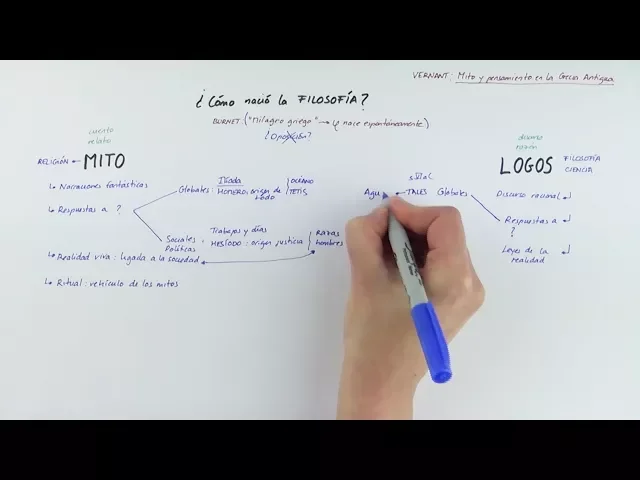 VERNANT: Mito y pensamiento en la Grecia Antigua
¿Cómo nació la FILOSOFÍA?
BURNET ("Milagro griego" → φ nace espontáneamente)
¿Oposición?
cuento
relato
RELIGIÓN ← MITO
↳ Narraciones fantásticas
↳ Respuestas a ?
Globales: Ilíada
HOMERO: origen de todo
OCÉANO
TETIS
Sociales
Políticas
Trabajos y días
HESÍODO: origen justicia
Razas
hombres
↳ Realidad viva: ligada a la sociedad
↳ Ritual: vehículo de los mitos
s. VI a.C
Agu ← TALES Globales
discurso
razón
LOGOS
FILOSOFÍA
CIENCIA
Discurso racional
Respuestas a
?
Leyes de la
realidad